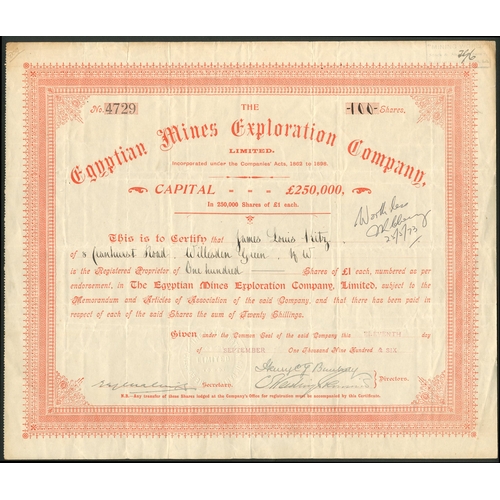 No. 4729
-100- Shares.
THE
Egyptian Mines Exploration Company,
LIMITED.
Incorporated under the Companies' Acts, 1862 to 1898.
CAPITAL - - - £250,000,
In 250,000 Shares of £1 each.
Worthless
This is to Certify that James Louis
of 8 Cranhurst Road, Willesden Green, N W
is the Registered Proprietor of One hundred Shares of £1 each, numbered as per
endorsement, in The Egyptian Mines Exploration Company, Limited, subject to the
Memorandum and Articles of Association of the said Company, and that there has been paid in
respect of each of the said Shares the sum of Twenty Shillings.
Given under the Common Seal of the said Company this ELEVENTH day
of SEPTEMBER One Thousand Nine Hundred & SIX
Secretary.
Directors.
N.B.—Any transfer of these Shares lodged at the Company's Office for registration must be accompanied by this Certificate.